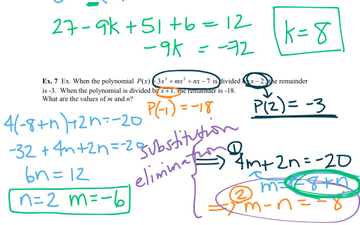 27 - 9k + 51 + 6 = 12
-9k = -72
k = 8
Ex. 7 Ex. When the polynomial P(x) = 3x³ + mx² + nx - 7 is divided by x - 2, the remainder
is -3. When the polynomial is divided by x + 1, the remainder is -18.
What are the values of m and n?
P(-1) = -18
P(2) = -3
4(-8+n)+2n=-20
-32 + 4n + 2n = -20
6n = 12
n = 2 m = -6
substitution
elimination
① ⇒ 4m + 2n = -20
m = -8 + n
② ⇒ m - n = -8